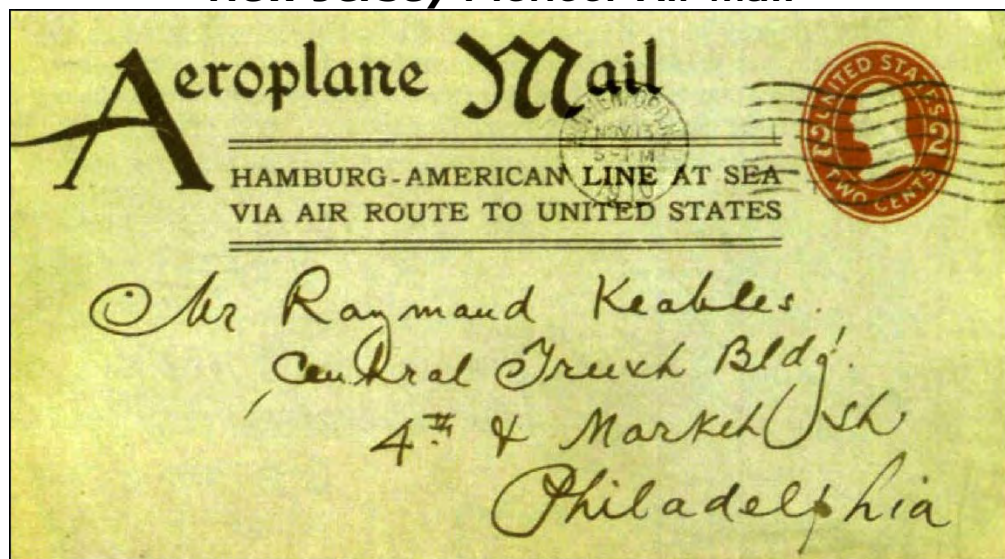 New Jersey Pioneer Air Mail
Aeroplane Mail
HAMBURG-AMERICAN LINE AT SEA
VIA AIR ROUTE TO UNITED STATES
NOV 13
UNITED STATES
2 2
TWO CENTS
Mr Raymond Keables.
Central Trust Bldg.
4th & Market St
Philadelphia